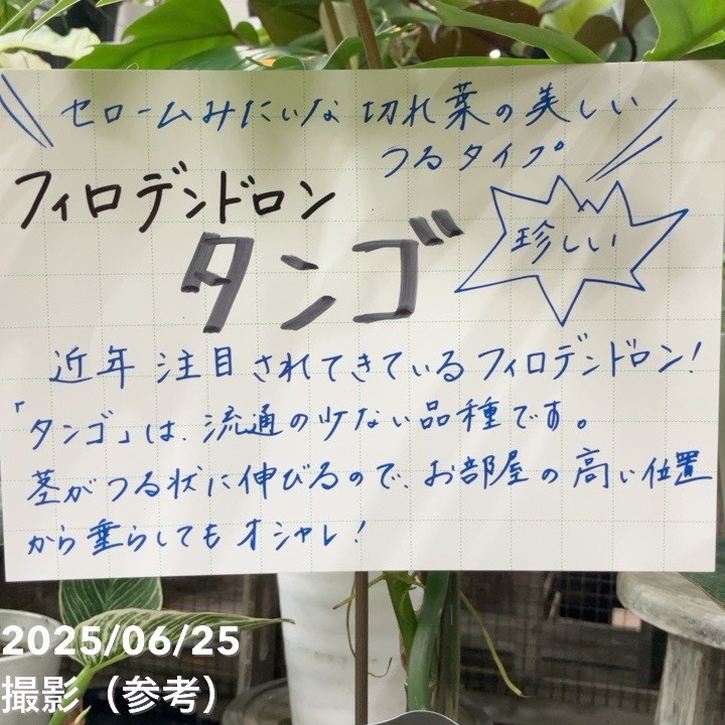 セロームみたいな切れ葉の美しい
つるタイプ
フィロデンドロン
タンゴ
珍しい
近年注目されてきているフィロデンドロン！
「タンゴ」は、流通の少ない品種です。
茎がつる状に伸びるので、お部屋の高い位置
から垂らしてもオシャレ！
2025/06/25
撮影（参考）